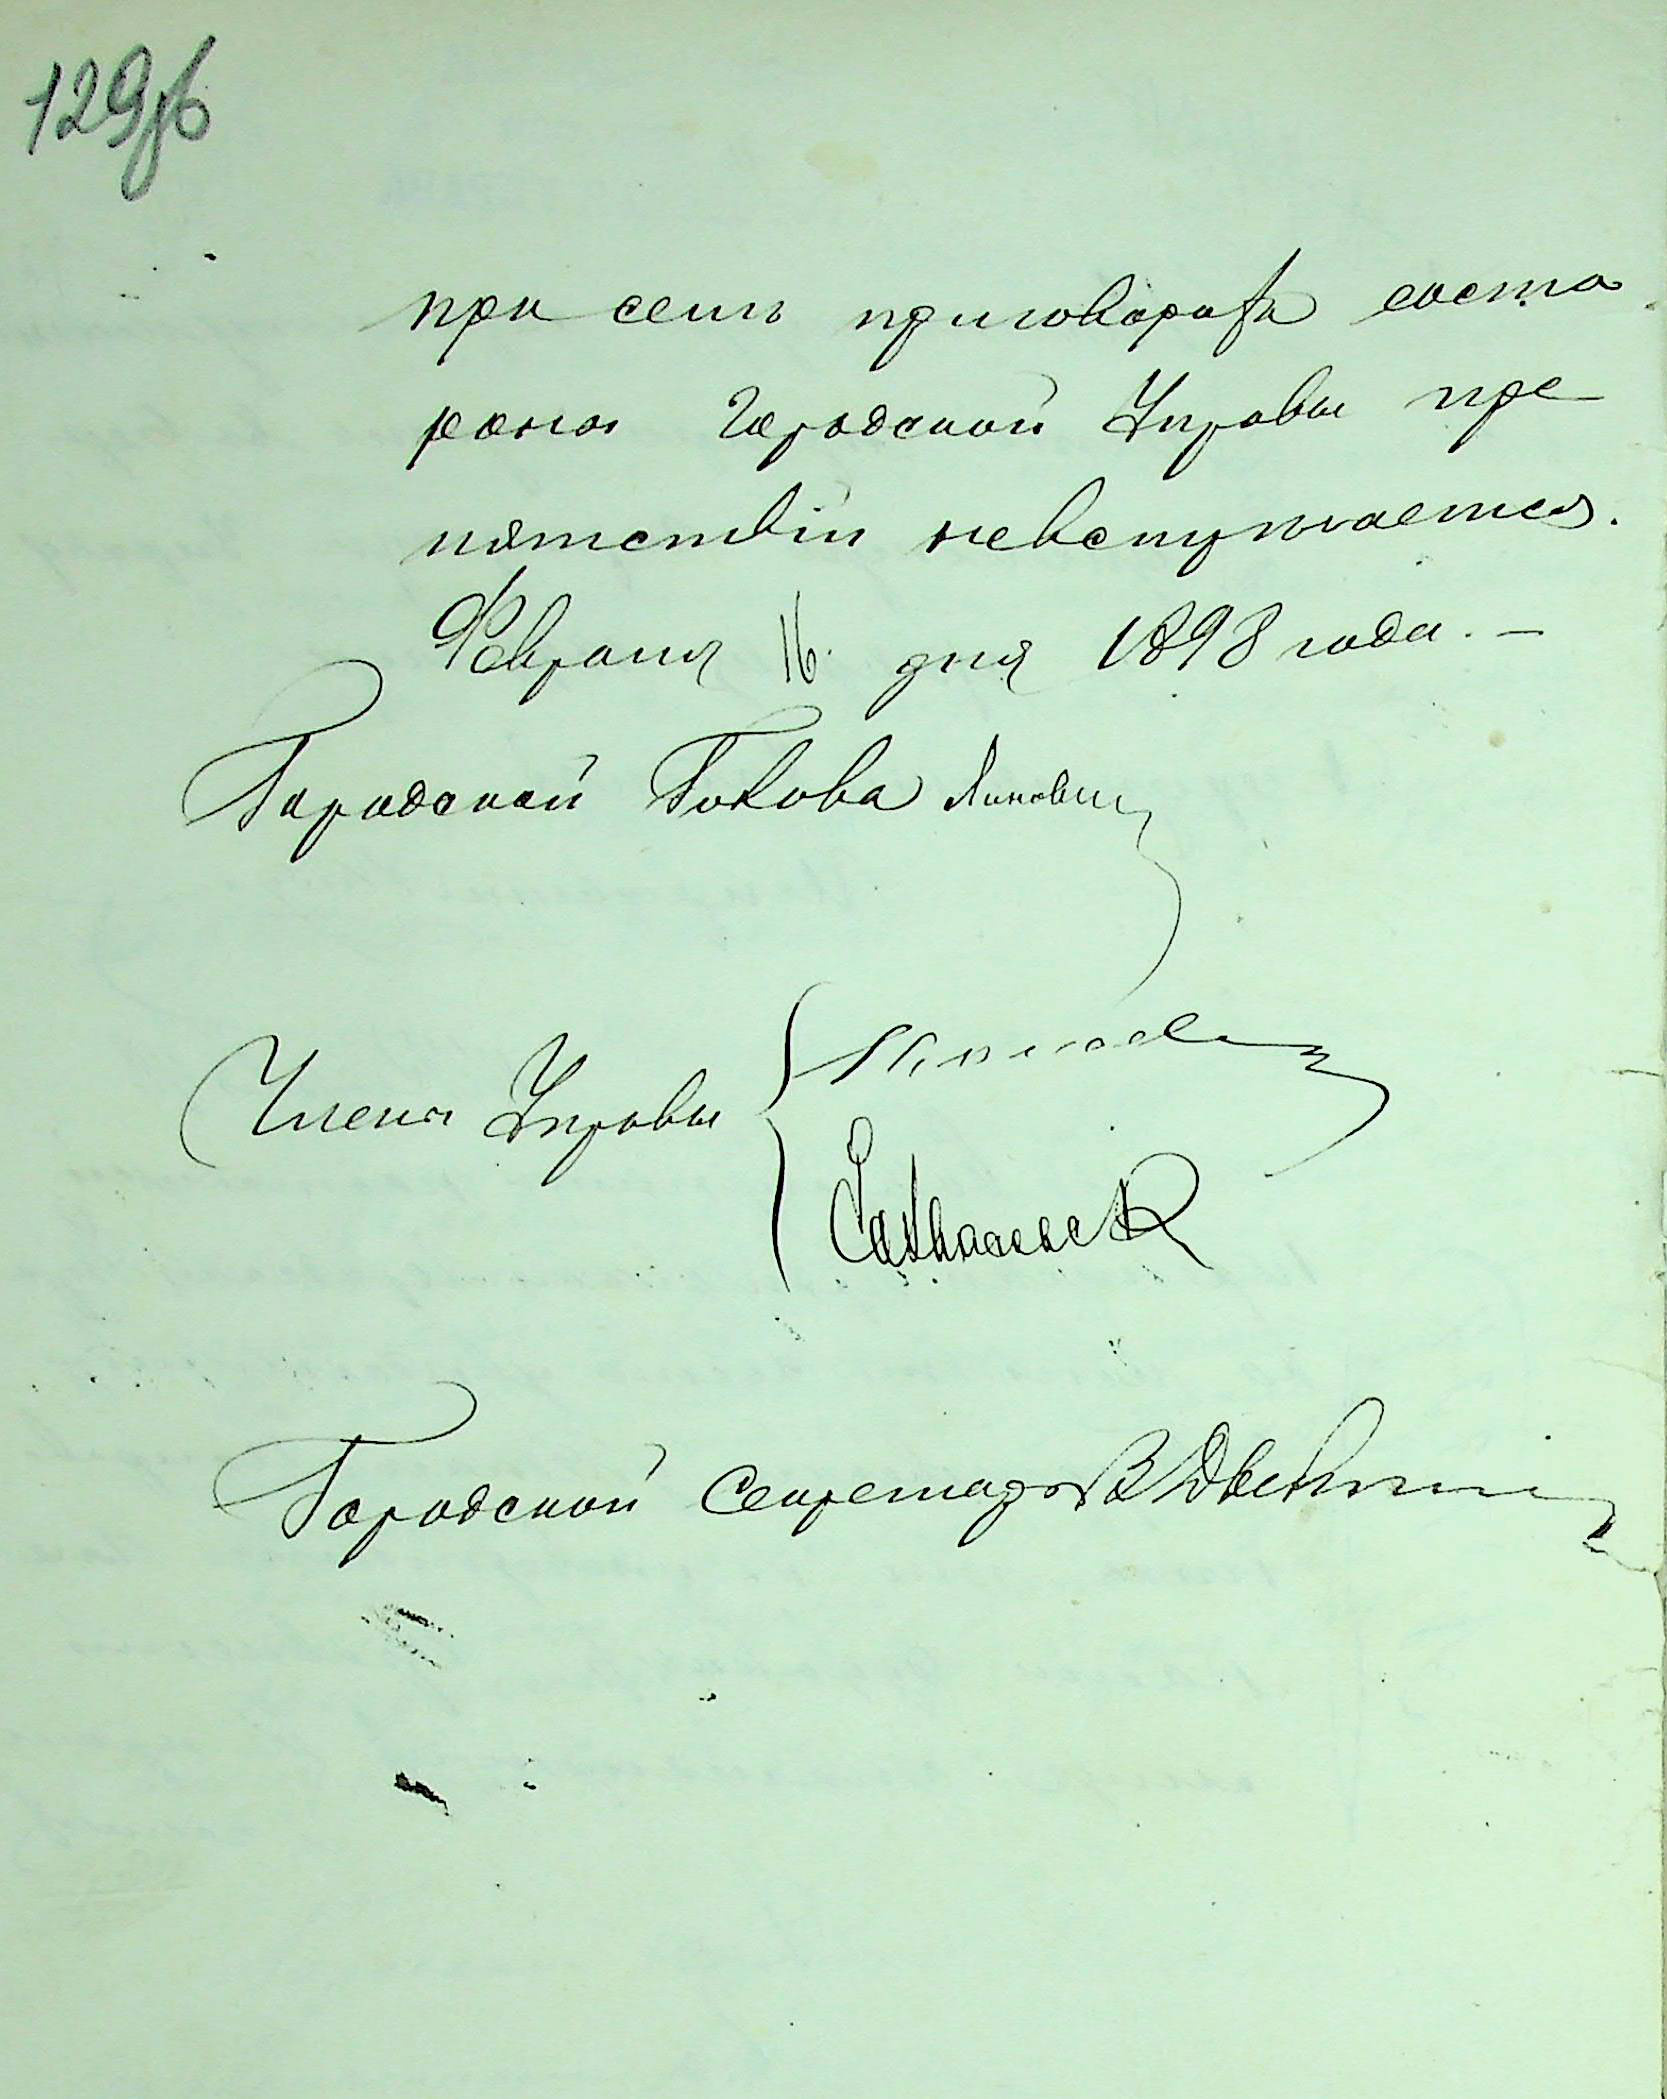 129об
при семъ приговорѣ со сто
роны Городской Управы пре
пятствій невстречается.
Февраля 16. дня 1898 года. —
Городской Голова
Члены Управы
Городской Секретарь